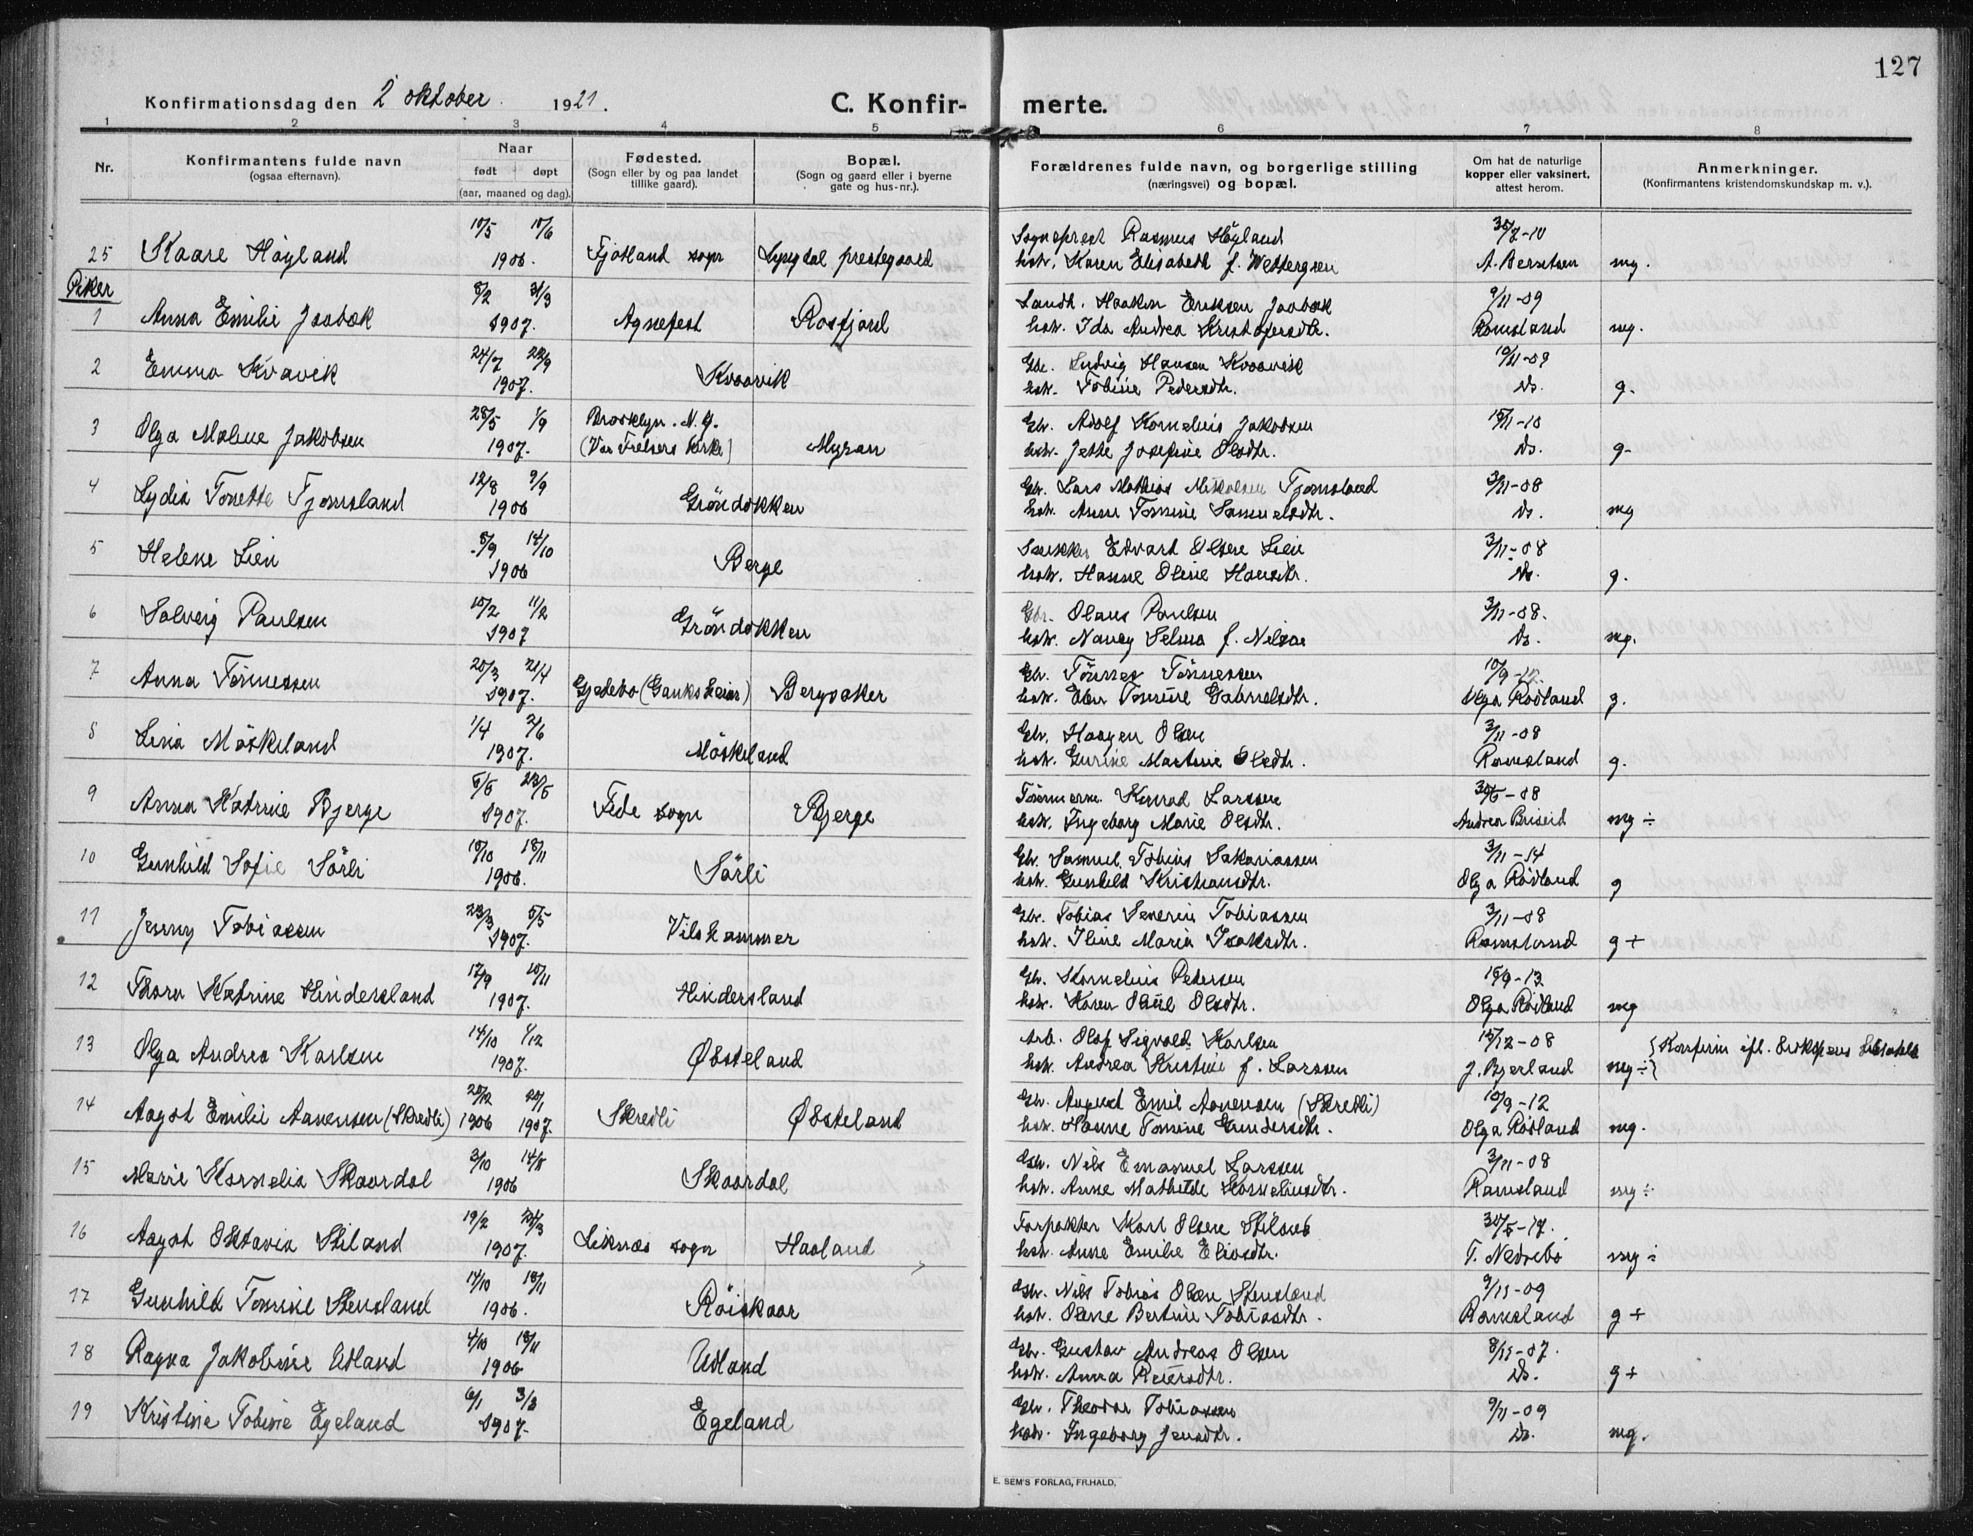 127
Konfirmationsdag den 2 oktober 1921.
C. Konfir- merte.
1 2 3 4 5 6 7 8
Nr.
Konfirmantens fulde navn
(ogsaa efternavn).
Naar
født døpt
(aar, maaned og dag).
Fødested.
(Sogn eller by og paa landet
tillike gaard).
Bopæl.
(Sogn og gaard eller i byerne
gate og hus-nr.).
Forældrenes fulde navn, og borgerlige stilling
(næringsvei) og bopæl.
Om hat de naturlige
kopper eller vaksinert,
attest herom.
Anmerkninger.
(Konfirmantens kristendomskundskap m. v.).
25 Kaare Høyland 1906. Fjotland sogn Lyngdal prestegaard Sogneprest Rasmus Høyland
hstr. Karen Elisabeth f. Wettergren A. Berntsen mg.
Piker
1 Anna Emilie Jaabæk 8/2 31/3 1907. Agnefest Rosfjord Landh. Haakon Eriksen Jaabæk 9/11-09
hstr. Ida Andrea Kristofersdtr. Ramsland mg.
2 Emma Kvavik 24/7 22/9 1907. Kvaavik Gbr. Ludvig Hansen Kvaavik 10/11-09
hstr. Tobine Pedersdtr. Ds. g.
3 Olga Malene Jakobsen 28/5 1/9 1907. Brooklyn. N.Y. (Vor Frelsers kirke) Myran Gbr. Adolf Kornelius Jakobsen 15/11-10
hstr. Jette Josefine Olsdtr. Ds. g.
4 Lydia Tonette Tjomsland 12/8 9/9 1906 Grøndokken Gbr. Lars Mathias Mikalsen Tjomsland 3/11-08
hstr. Anne Tomine Samuelsdtr. Ds. mg
5 Helene Lien 5/9 14/10 1906 Berge Snekker Edvart Olsen Lien 3/11-08
hstr. Hanne Oline Hansdtr. Ds. g.
6 Solveig Paulsen 11/2 1907 Grøndokken Gbr. Olaus Paulsen 3/11-08.
hstr. Nancy Selma f. Nilsen Ds. mg.
7 Anna Tønnessen 20/3 21/4 1907. Gjedebo (Bergsaker Gbr. Tønnes Tønnessen 10/9-12.
hstr. Elen Tomine Gabrielsdtr. Olga Rødland g.
8 Lina Møskeland 1/4 2/6 1907. Møskeland Gbr. Haagen Olsen 3/11-08
hstr. Gurine Martine Olsdtr. Ramsland g.
9 Anna Katrine Bjerge 1907. Fede sogn Bjerge Tømmerm. Konrad Larssen -08
hstr. Ingeborg Marie Olsdtr. Andrea Briseid mg ÷
10 Gunhild Sofie Sørli 10/10 18/11 1906. Sørli Gbr. Samuel Tobias Sakariassen 3/11-14
hstr. Gunhild Kristiansdtr. Olga Rødland g
11 Jenny Tobiassen 23/3 5/5 1907. Vilskammer Gbr. Tobias Severin Tobiassen 3/11-08
hstr. Iline Maria Isaksdtr. Ramsland g +
12 Thora Katrine Hindersland 12/9 10/11 1907. Hindersland Gbr. Kornelius Petersen -13
hstr. Karen Oline Olsdtr. Olga Rødland mg
13 Olga Andrea Karlsen 14/10 1/12 1907. Øksteland Arb. Olaf Sigvald Karlsen 12-08
hstr. Andrea Kristine f. Larssen J. Bjerland mg ÷ { Konfirm. ifl. biskopens
14 Aagot Emilie Aanensen (Skredli) 25/12 20/1 1906 1907. Skredli Øksteland Gbr. August Emil Aanensen (Skredli) 10/9-12
hstr. Hanne Tomine Gundersdtr. Olga Rødland mg.
15 Marie Kornelia Skaardal 1906 Skaardal Gbr. Nils Emanuel Larssen 3/11-08
hstr. Anne Mathilde Korneliusdtr. Ramsland mg ÷
16 Aagot Oktavia Stiland 19/2 1907. Liknes sogn Haaland Forpakter Karl Olsen
hstr. Anne Emilie Eliasdtr. T. Nedrebø mg ÷
17 Gunhild Tomine Stensland 14/10 18/11 1906. Røiskaar Gbr. Nils Tobias Olsen Stensland 9/11-09
hstr. Olene Bertine Tobiasdtr. Ramsland g +
18 Ragna Jakobine Udland 4/10 18/11 1906 Udland Gbr. Gustav Andreas Olsen 8/11-07.
hstr. Anna Reiersdtr. Ds. g +
19 Kristine Tobine Egeland 6/1 3/3 1907. Egeland Gbr. Theodor Tobiassen 9/11-09
hstr. Ingeborg Jensdtr. Ds. mg.
E. SEM'S FORLAG, FR.HALD.